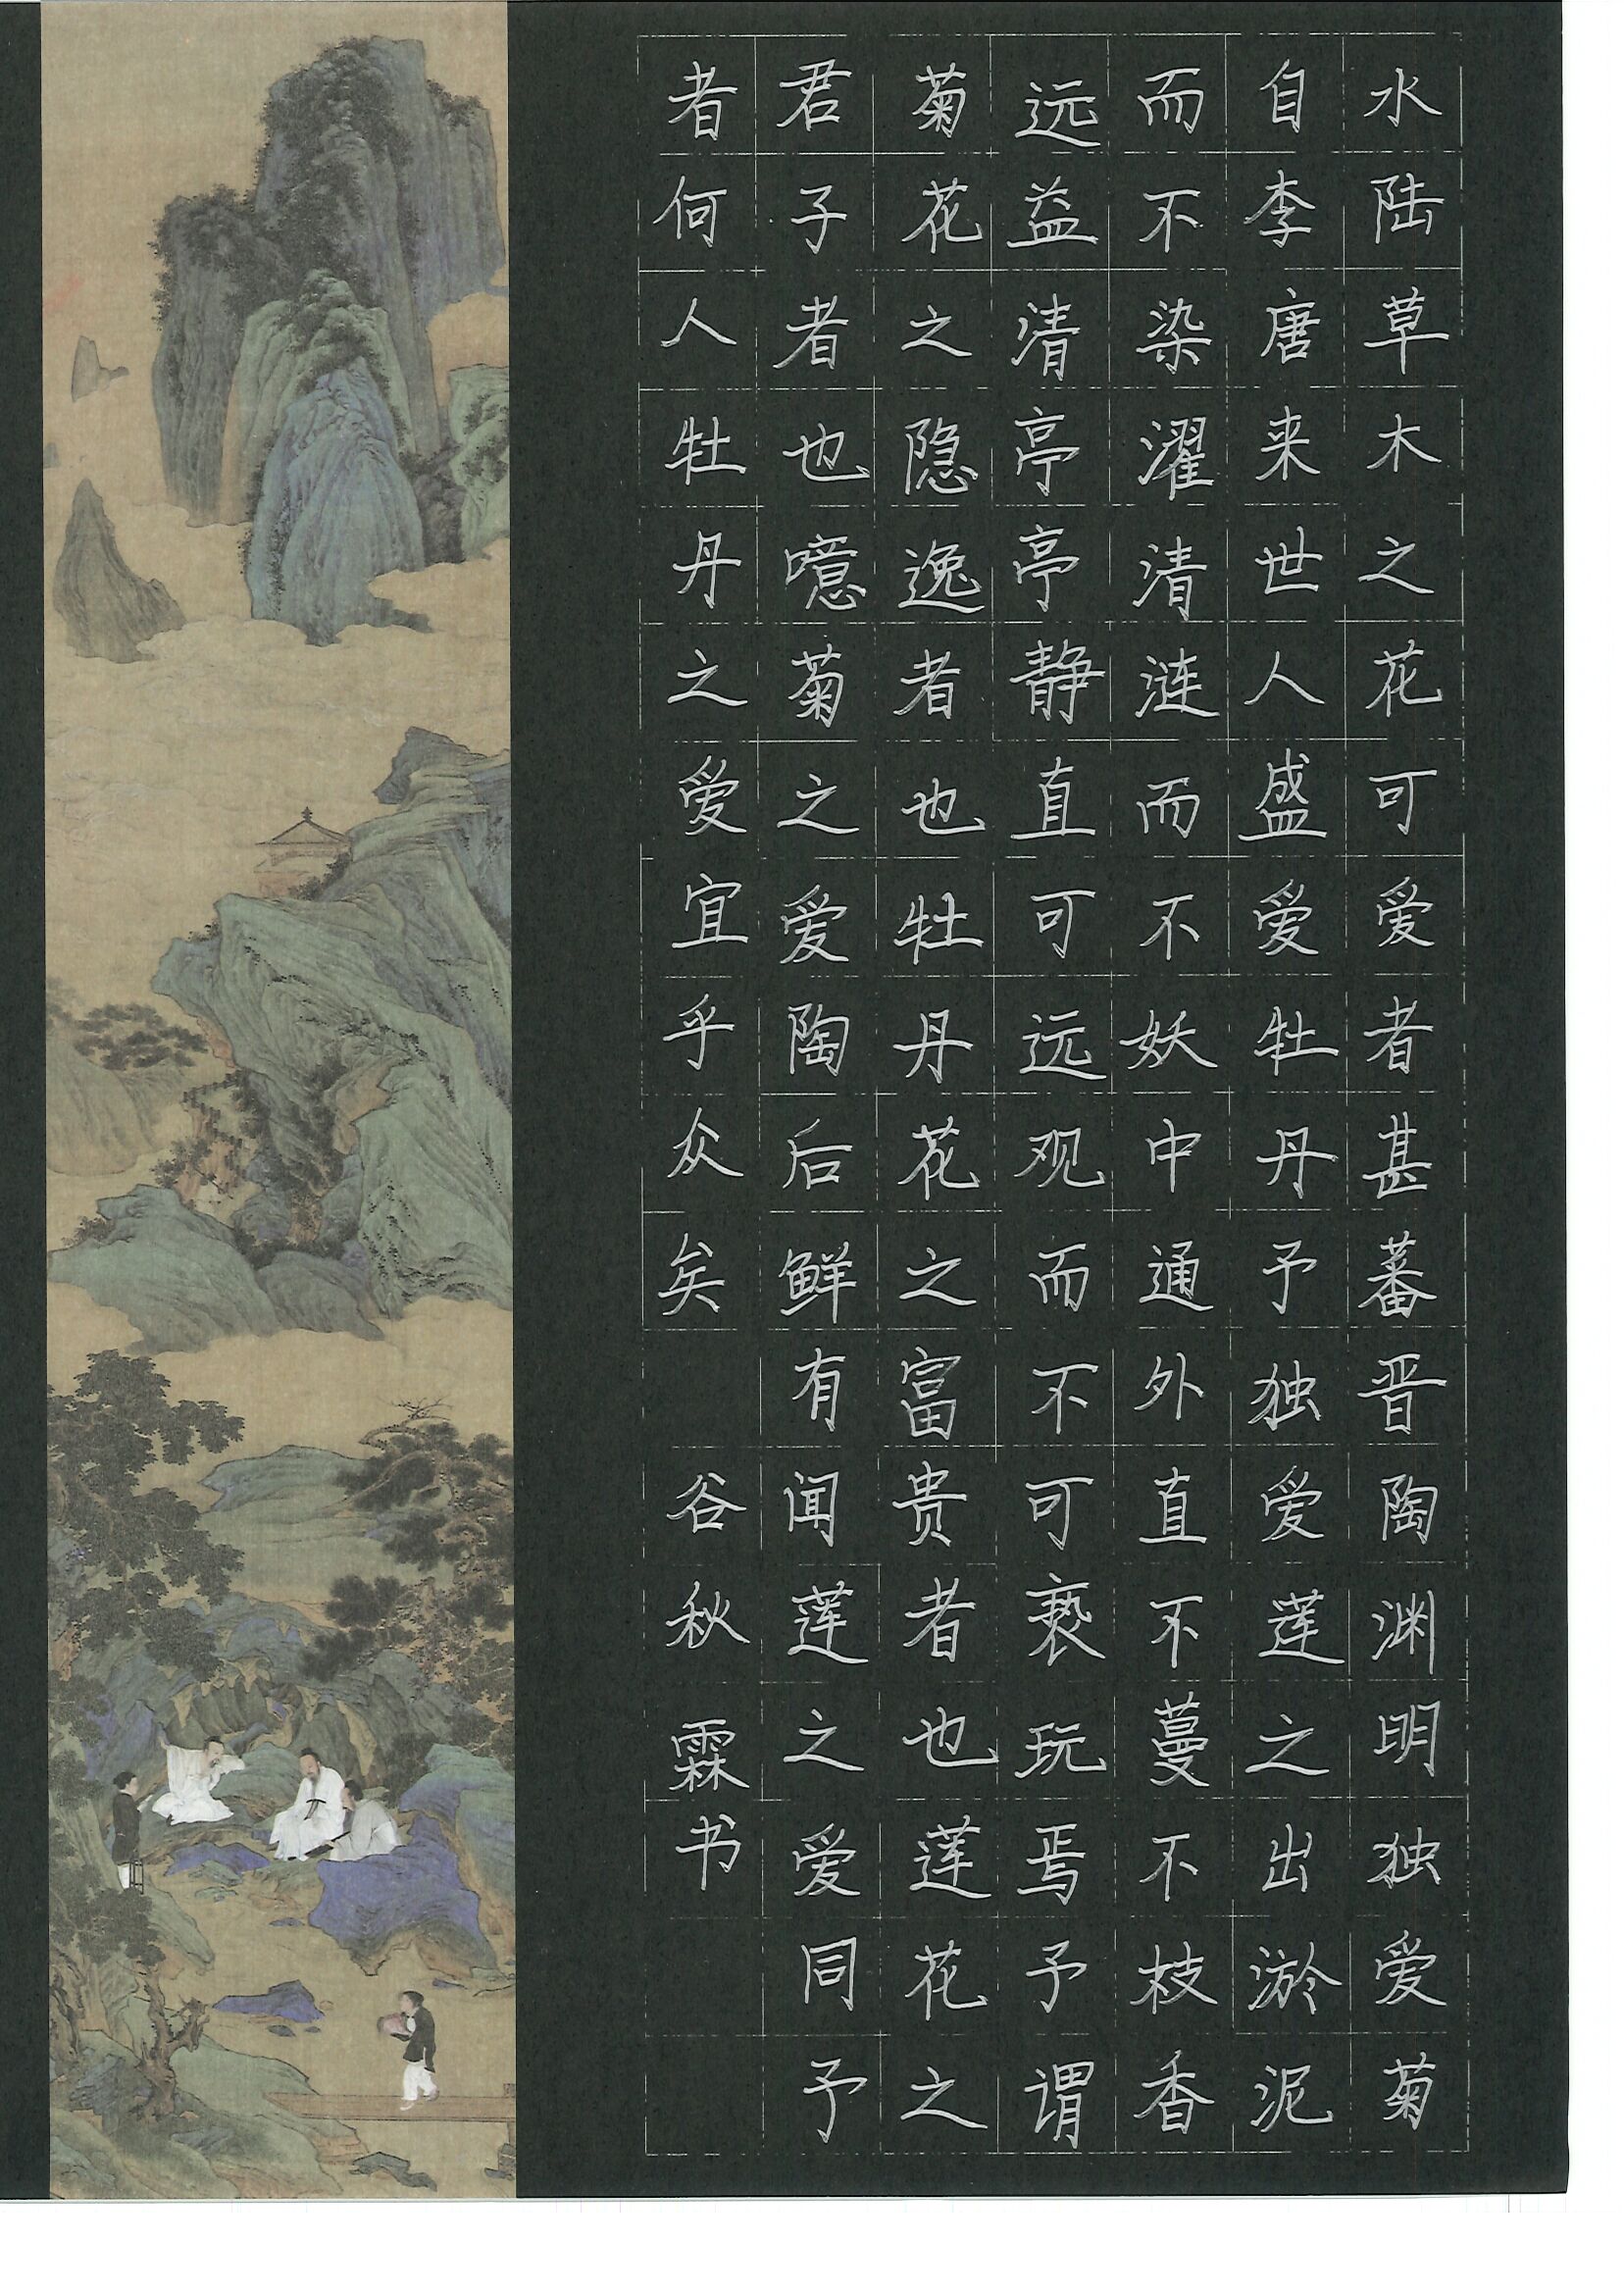 水陆草木之花可爱者甚蕃晋陶渊明独爱菊
自李唐来世人盛爱牡丹予独爱莲之出淤泥
而不染濯清涟而不妖中通外直不蔓不枝香
远益清亭亭静直可远观而不可亵玩焉予谓
菊花之隐逸者也牡丹花之富贵者也莲花之
君子者也噫菊之爱陶后鲜有闻莲之爱同予
者何人牡丹之爱宜乎众矣 谷秋霖书